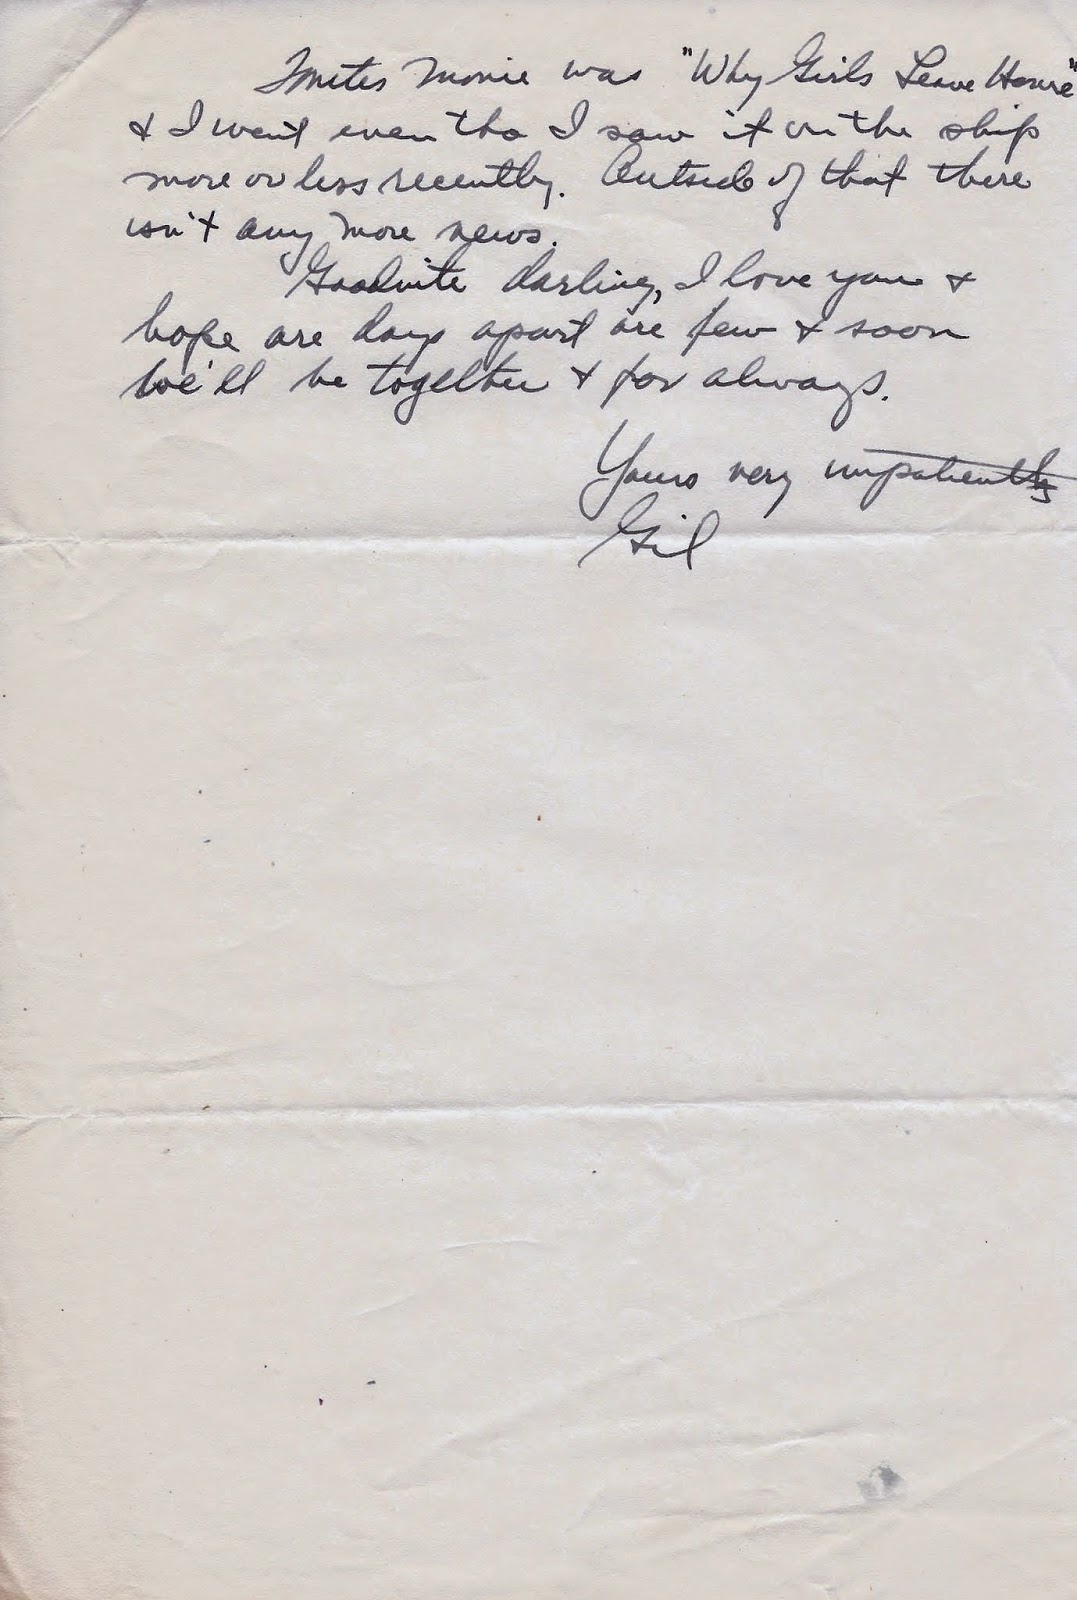 Tonites Movie was "Why Girls Leave Home"
& I went even tho I saw it on the ship
more or less recently. Outside of that there
isn't any more news.
Goodnite darling, I love you &
hope are days apart are few & soon
we'll be together & for always.
Yours very impatiently
Gil